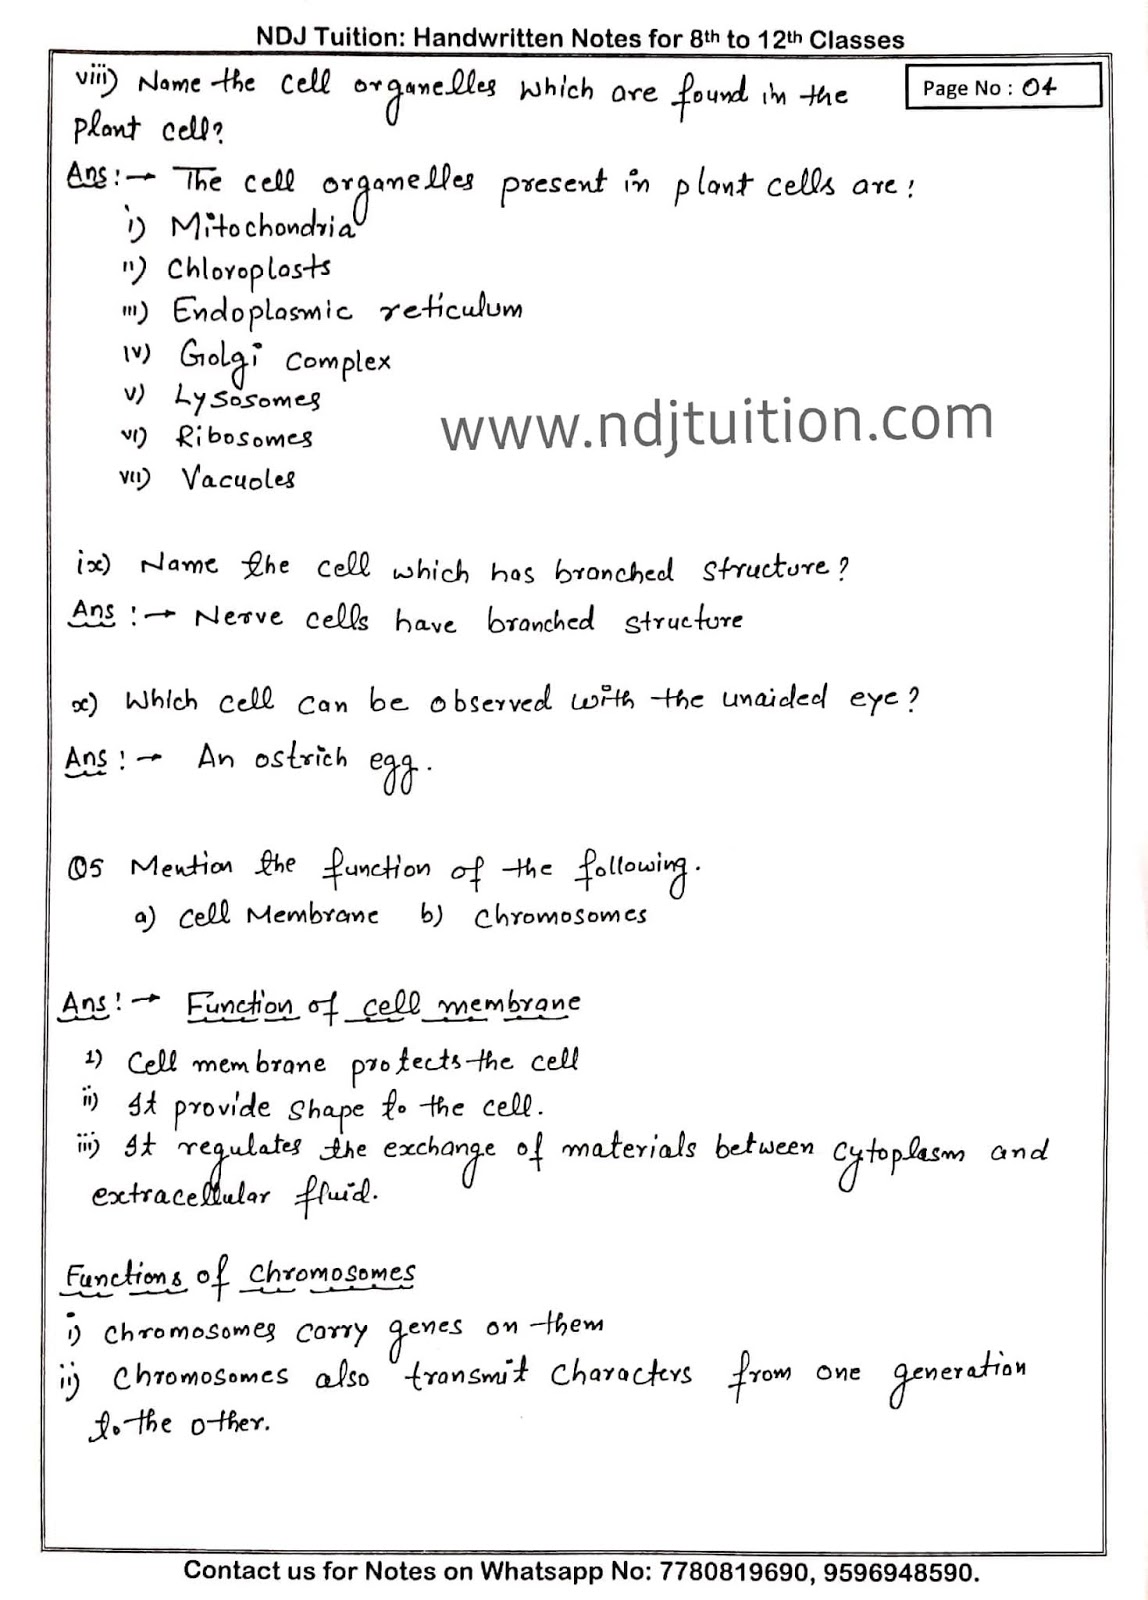 NDJ Tuition: Handwritten Notes for 8th to 12th Classes
Page No : 04
viii) Name the cell organelles which are found in the
plant cell?
Ans :→ The cell organelles present in plant cells are :
i) Mitochondria
ii) Chloroplasts
iii) Endoplasmic reticulum
iv) Golgi complex
v) Lysosomes
vi) Ribosomes
vii) Vacuoles
www.ndjtuition.com
ix) Name the cell which has branched structure?
Ans :→ Nerve cells have branched structure
x) Which cell can be observed with the unaided eye?
Ans :→ An ostrich egg.
Q5 Mention the function of the following.
a) Cell Membrane b) Chromosomes
Ans :→ Function of cell membrane
1) Cell membrane protects the cell
ii) It provide shape to the cell.
iii) It regulates the exchange of materials between cytoplasm and
extracellular fluid.
Functions of chromosomes
i) Chromosomes carry genes on them
ii) Chromosomes also transmit characters from one generation
to the other.
Contact us for Notes on Whatsapp No: 7780819690, 9596948590.